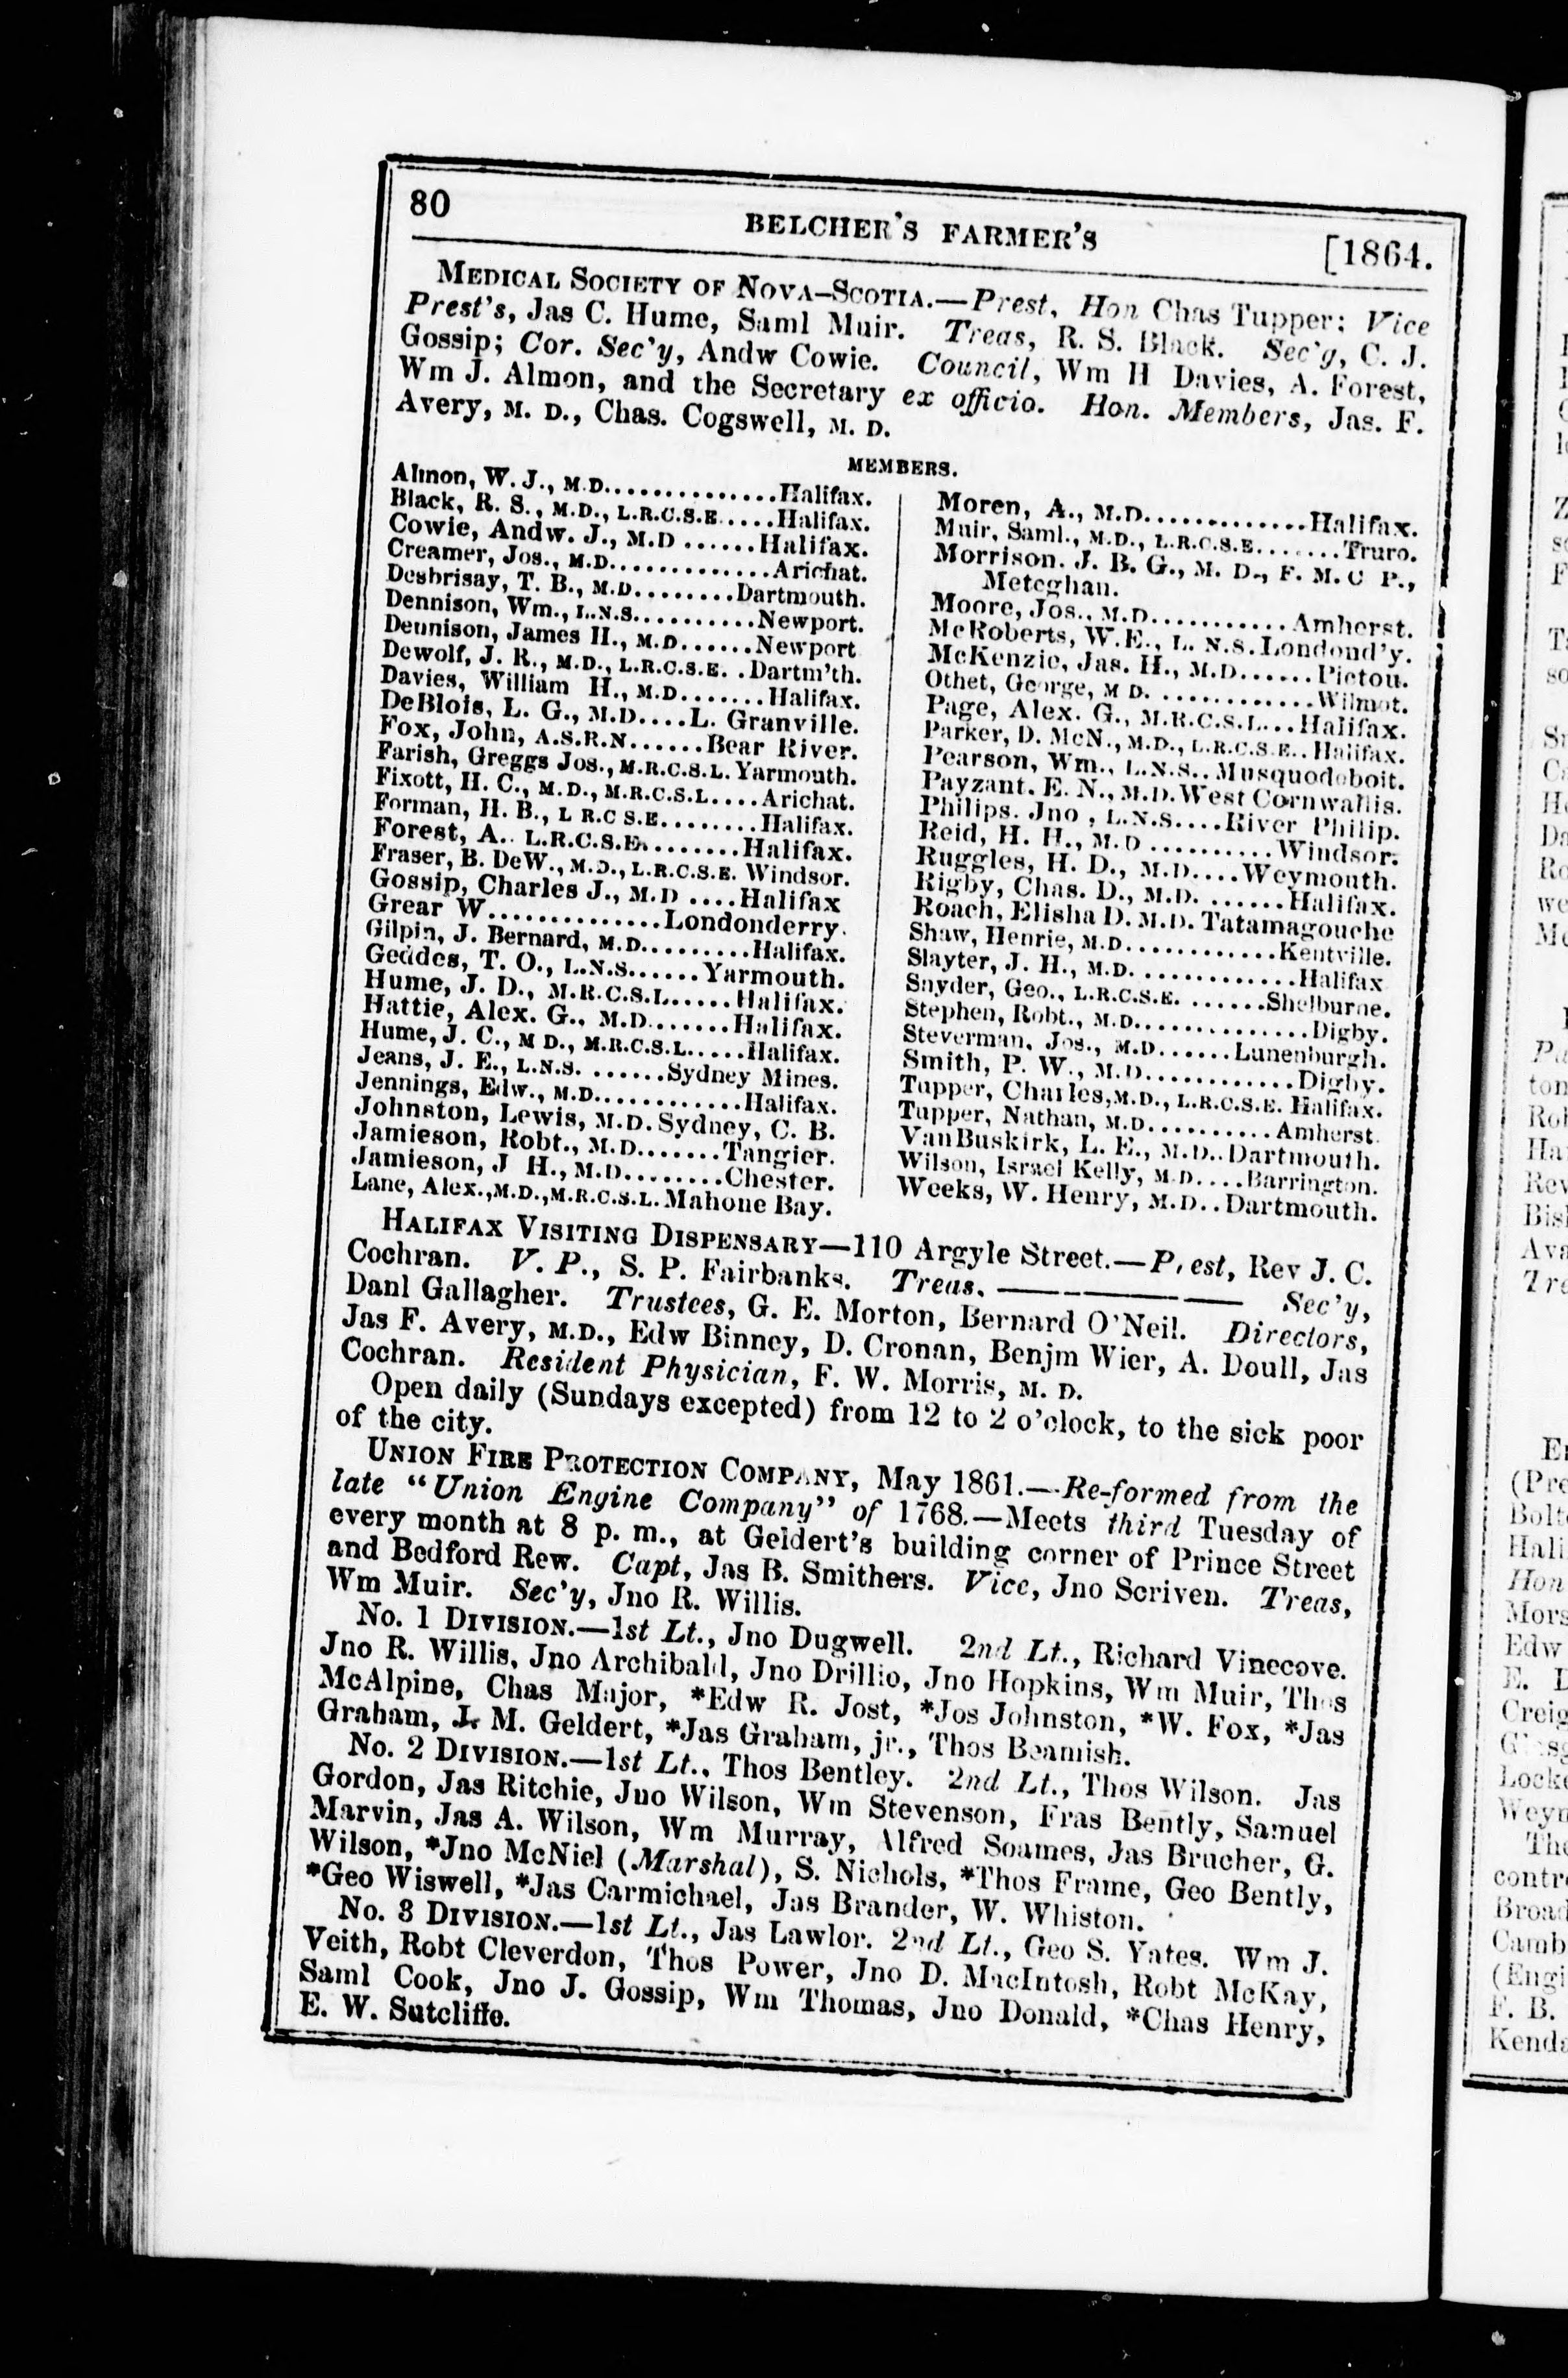 80
BELCHER'S FARMER'S
[1864.
MEDICAL SOCIETY OF NOVA-SCOTIA.—Prest, Hon Chas Tupper; Vice
Prest's, Jas C. Hume, Saml Muir. Treas, R. S. Black. Sec'y, C. J.
Gossip; Cor. Sec'y, Andw Cowie. Council, Wm H Davies, A. Forest,
Wm J. Almon, and the Secretary ex officio. Hon. Members, Jas. F.
Avery, M. D., Chas. Cogswell, M. D.
MEMBERS.
Almon, W. J., M.D..............Halifax.
Black, R. S., M.D., L.R.C.S.E.....Halifax.
Cowie, Andw. J., M.D ......Halifax.
Creamer, Jos., M.D.............Arichat.
Desbrisay, T. B., M.D........Dartmouth.
Dennison, Wm., L.N.S..........Newport.
Dennison, James H., M.D......Newport
Dewolf, J. R., M.D., L.R.C.S.E. .Dartm'th.
Davies, William H., M.D.......Halifax.
DeBlois, L. G., M.D....L. Granville.
Fox, John, A.S.R.N......Bear River.
Farish, Greggs Jos., M.R.C.S.L. Yarmouth.
Fixott, H. C., M.D., M.R.C.S.L....Arichat.
Forman, H. B., L R.C S.E........Halifax.
Forest, A.. L.R.C.S.E........Halifax.
Fraser, B. DeW., M.D., L.R.C.S.E. Windsor.
Gossip, Charles J., M.D ....Halifax
Grear W..............Londonderry.
Gilpin, J. Bernard, M.D.........Halifax.
Geddes, T. O., L.N.S......Yarmouth.
Hume, J. D., M.R.C.S.L.....Halifax.
Hattie, Alex. G., M.D.......Halifax.
Hume, J. C., M D., M.R.C.S.L.....Halifax.
Jeans, J. E., L.N.S. ......Sydney Mines.
Jennings, Edw., M.D............Halifax.
Johnston, Lewis, M.D. Sydney, C. B.
Jamieson, Robt., M.D.......Tangier.
Jamieson, J H., M.D........Chester.
Lane, Alex., M.D., M.R.C.S.L. Mahone Bay.
Moren, A., M.D.............Halifax.
Muir, Saml., M.D., L.R.C.S.E.......Truro.
Morrison. J. B. G., M. D., F. M. C P.,
Meteghan.
Moore, Jos., M.D...........Amherst.
McRoberts, W.E., L. N.S. Londond'y.
McKenzie, Jas. H., M.D......Pictou.
Othet, George, M D. .............Wilmot.
Page, Alex. G., M.R.C.S.L...Halifax.
Parker, D. McN., M.D., L.R.C.S.E.. Halifax.
Pearson, Wm., L.N.S.. Musquodoboit.
Payzant. E. N., M.D. West Cornwallis.
Philips. Jno , L.N.S....River Philip.
Reid, H. H., M.D ..........Windsor.
Ruggles, H. D., M.D....Weymouth.
Rigby, Chas. D., M.D. .......Halifax.
Roach, Elisha D. M.D. Tatamagouche
Shaw, Henrie, M.D............Kentville.
Slayter, J. H., M.D. .............Halifax
Snyder, Geo., L.R.C.S.E. .......Shelburne.
Stephen, Robt., M.D..............Digby.
Steverman. Jos., M.D......Lunenburgh.
Smith, P. W., M.D............Digby.
Tupper, Charles, M.D., L.R.C.S.E. Halifax.
Tupper, Nathan, M.D..........Amherst.
VanBuskirk, L. E., M.D..Dartmouth.
Wilson, Israel Kelly, M.D....Barrington.
Weeks, W. Henry, M.D..Dartmouth.
HALIFAX VISITING DISPENSARY—110 Argyle Street.—Prest, Rev J. C.
Cochran. V. P., S. P. Fairbanks. Treas. ———— Sec'y,
Danl Gallagher. Trustees, G. E. Morton, Bernard O'Neil. Directors,
Jas F. Avery, M.D., Edw Binney, D. Cronan, Benjm Wier, A. Doull, Jas
Cochran. Resident Physician, F. W. Morris, M. D.
Open daily (Sundays excepted) from 12 to 2 o'clock, to the sick poor
of the city.
UNION FIRE PROTECTION COMPANY, May 1861.—Re-formed from the
late "Union Engine Company" of 1768.—Meets third Tuesday of
every month at 8 p. m., at Geldert's building corner of Prince Street
and Bedford Rew. Capt, Jas B. Smithers. Vice, Jno Scriven. Treas,
Wm Muir. Sec'y, Jno R. Willis.
No. 1 DIVISION.—1st Lt., Jno Dugwell. 2nd Lt., Richard Vinecove.
Jno R. Willis, Jno Archibald, Jno Drillio, Jno Hopkins, Wm Muir, Thos
McAlpine, Chas Major, *Edw R. Jost, *Jos Johnston, *W. Fox, *Jas
Graham, J. M. Geldert, *Jas Graham, jr., Thos Beamish.
No. 2 DIVISION.—1st Lt., Thos Bentley. 2nd Lt., Thos Wilson. Jas
Gordon, Jas Ritchie, Jno Wilson, Wm Stevenson, Fras Bently, Samuel
Marvin, Jas A. Wilson, Wm Murray, Alfred Soames, Jas Brucher, G.
Wilson, *Jno McNiel (Marshal), S. Nichols, *Thos Frame, Geo Bently,
*Geo Wiswell, *Jas Carmichael, Jas Brander, W. Whiston.
No. 3 DIVISION.—1st Lt., Jas Lawlor. 2nd Lt., Geo S. Yates. Wm J.
Veith, Robt Cleverdon, Thos Power, Jno D. MacIntosh, Robt McKay,
Saml Cook, Jno J. Gossip, Wm Thomas, Jno Donald, *Chas Henry,
E. W. Sutcliffe.